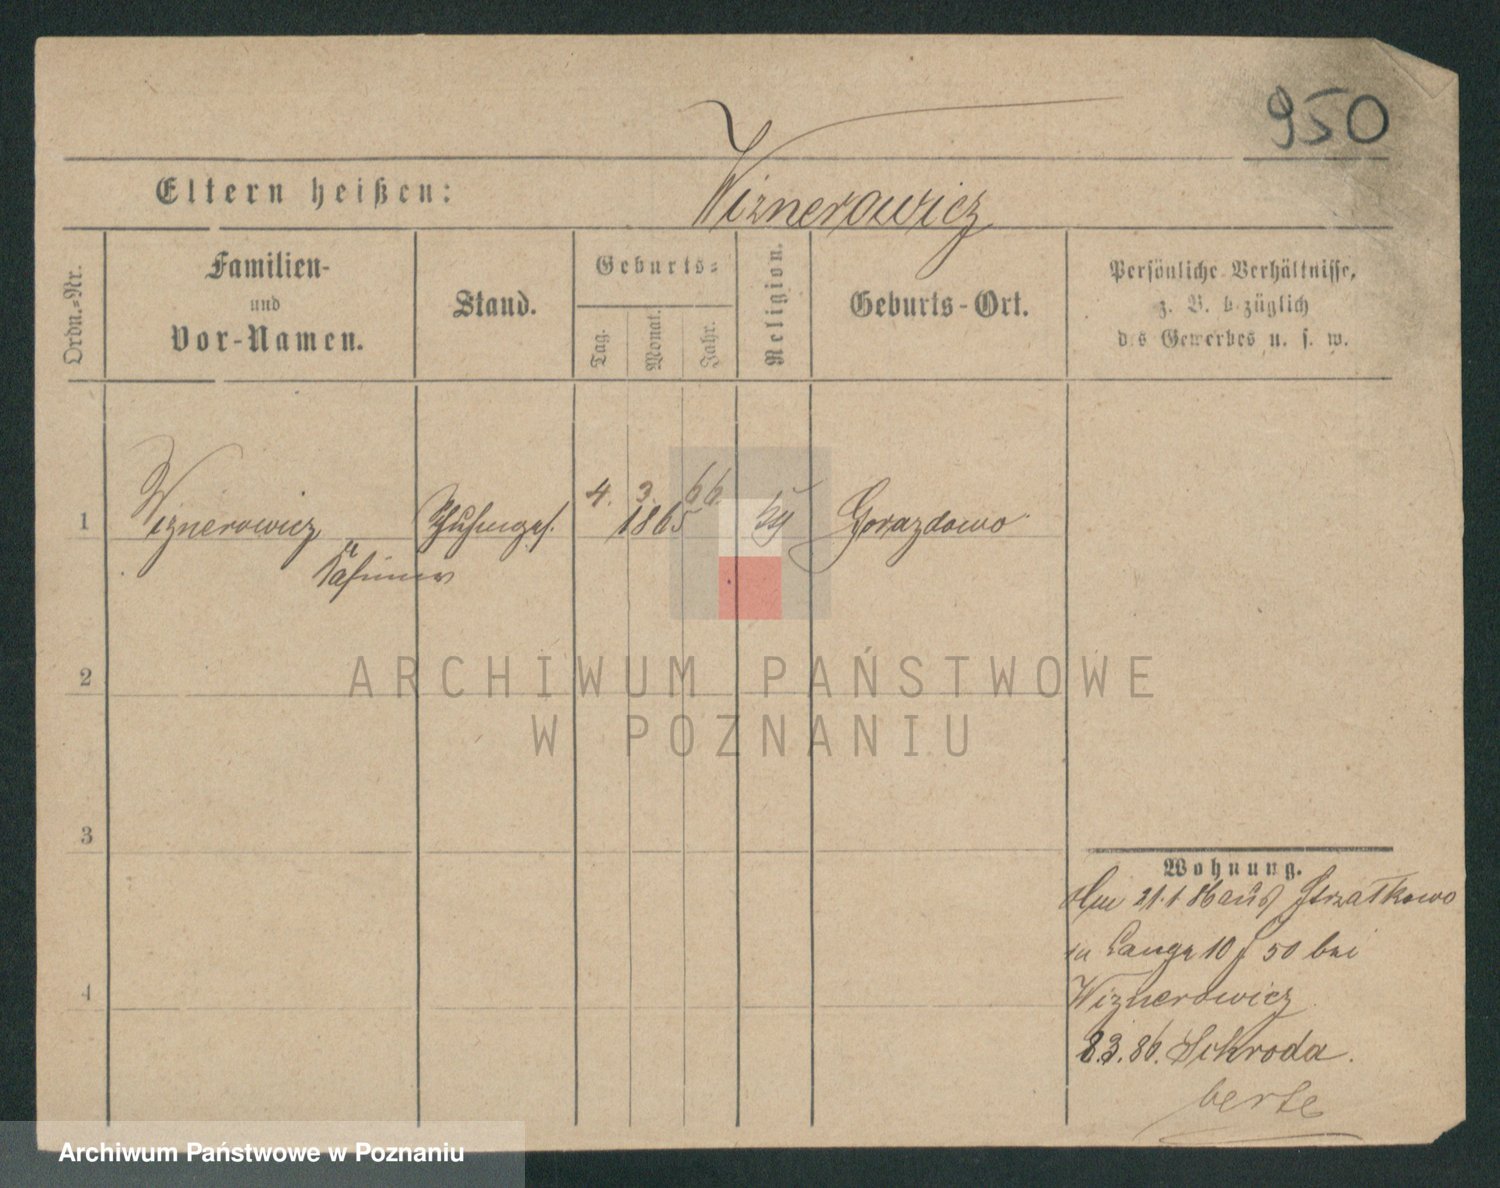 950
Eltern heißen:
Wiznerowicz
Ordn.-Nr.
Familien-
und
Vor-Namen.
Stand.
Geburts-
Tag.
Monat.
Jahr.
Religion.
Geburts-Ort.
Persönliche Verhältnisse,
z. B. bezüglich
des Gewerbes u. s. w.
1
Wiznerowicz
Schuhmges.
4. 3. 66.
1865
Gorazdowo
2
ARCHIWUM PAŃSTWOWE
W POZNANIU
3
Wohnung.
21.1 86 aus Strzałkowo
Lange 10 f 50 bei
4
Wiznerowicz
8.3.86. Schroda.
Archiwum Państwowe w Poznaniu